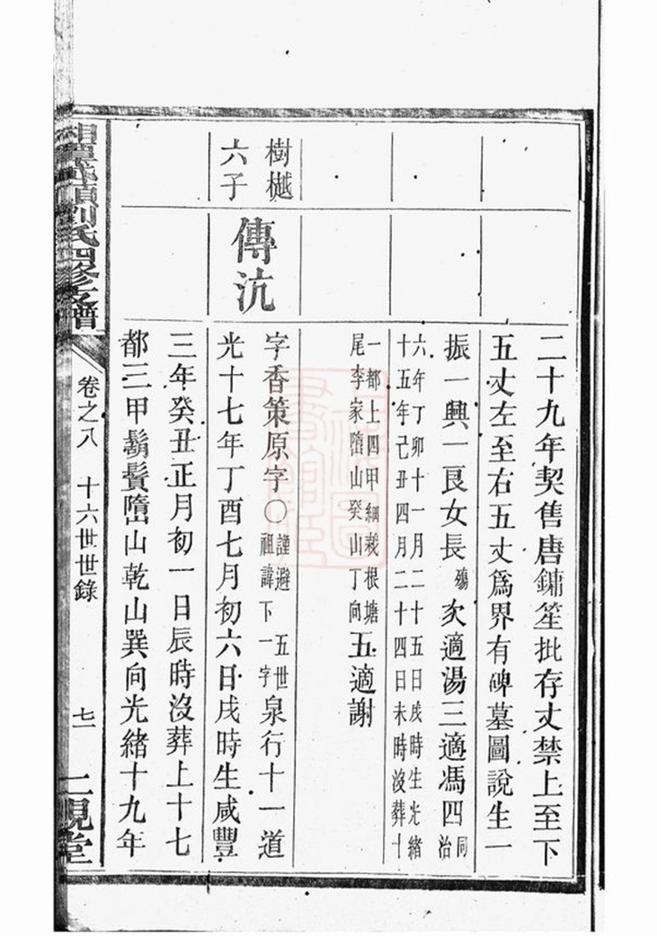 二十九年契售唐鏞笙批存丈禁上至下
五丈左至右五丈爲界有碑墓圖說生一
振一興一艮女長殤次適湯三適馮四同治
六年丁卯十一月二十五日戌時生光緒
十五年己丑四月二十四日未時沒葬十
一都上四甲綱裁根塘
尾李家墮山癸山丁向五適謝
樹樾
六子
傳沆
字香策原字〇謹避五世祖諱下一字泉行十一道
光十七年丁酉七月初六日戌時生咸豐
三年癸丑正月初一日辰時沒葬上十七
都三甲鬍鬚墮山乾山巽向光緒十九年
劉氏四修支譜
卷之八 十六世世錄
七一